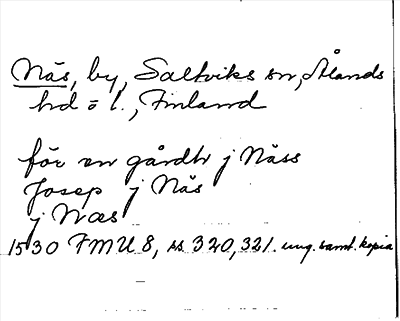 Näs, by, Saltviks sn, Ålands
hd o l., Finland
för en gårdh j Näss
Josep j Näs
j Næs
1530 FMU 8, ss. 320, 321. ung. samt. kopia